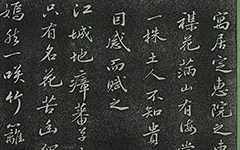 寓居定惠院之
襍花滿山有海棠
一株土人不知貴
因感而賦之
江城地瘴蕃草
只有名花苦幽
嫣然一咲竹籬